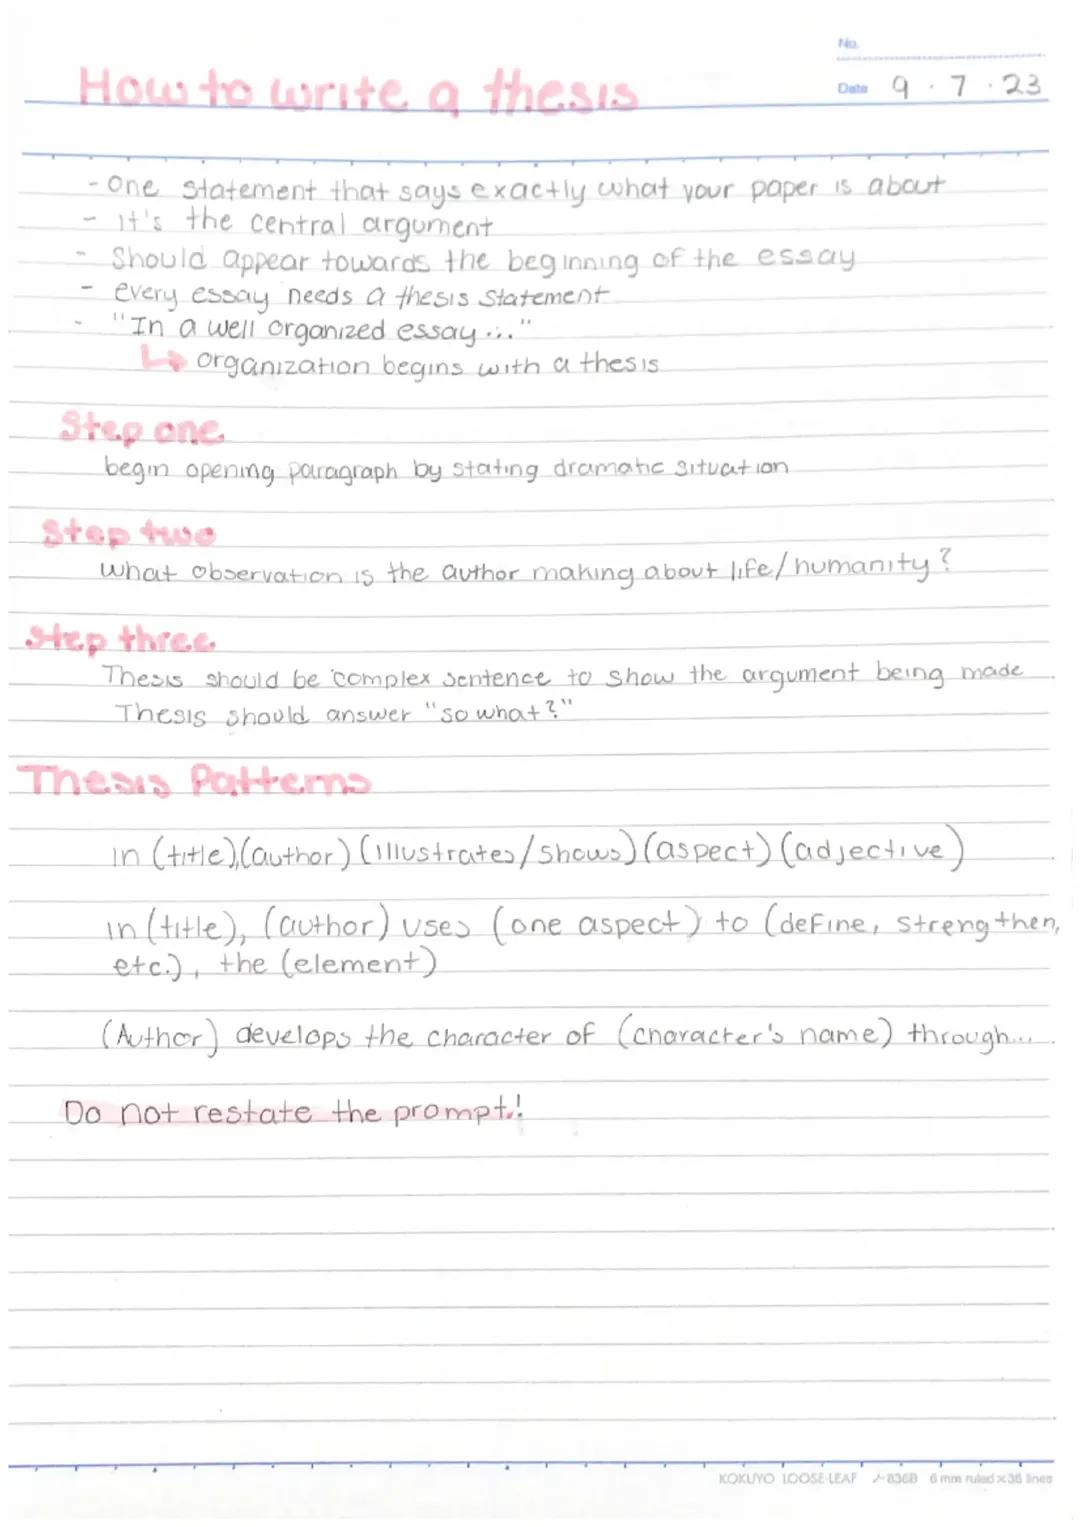 No.
How to write a thesis
Date 9 · 7 · 23
- One statement that says exactly what your paper is about
- It's the central argument
- Should appear towards the beginning of the essay
- every essay needs a thesis statement
- "In a well organized essay..."
↳ organization begins with a thesis
Step one
begin opening paragraph by stating dramatic situation
Step two
what observation is the author making about life/humanity?
Step three
Thesis should be complex sentence to show the argument being made
Thesis should answer "so what?"
Thesis Patterns
in (title), (author) (illustrates/shows) (aspect) (adjective)
in (title), (author) uses (one aspect) to (define, strengthen,
etc.), the (element)
(Author) develops the character of (character's name) through...
Do not restate the prompt!
KOKUYO LOOSE-LEAF ノ-836B 6 mm ruled × 36 lines